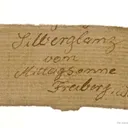 Silberglanz
von
Mittagsonne
Freiberg